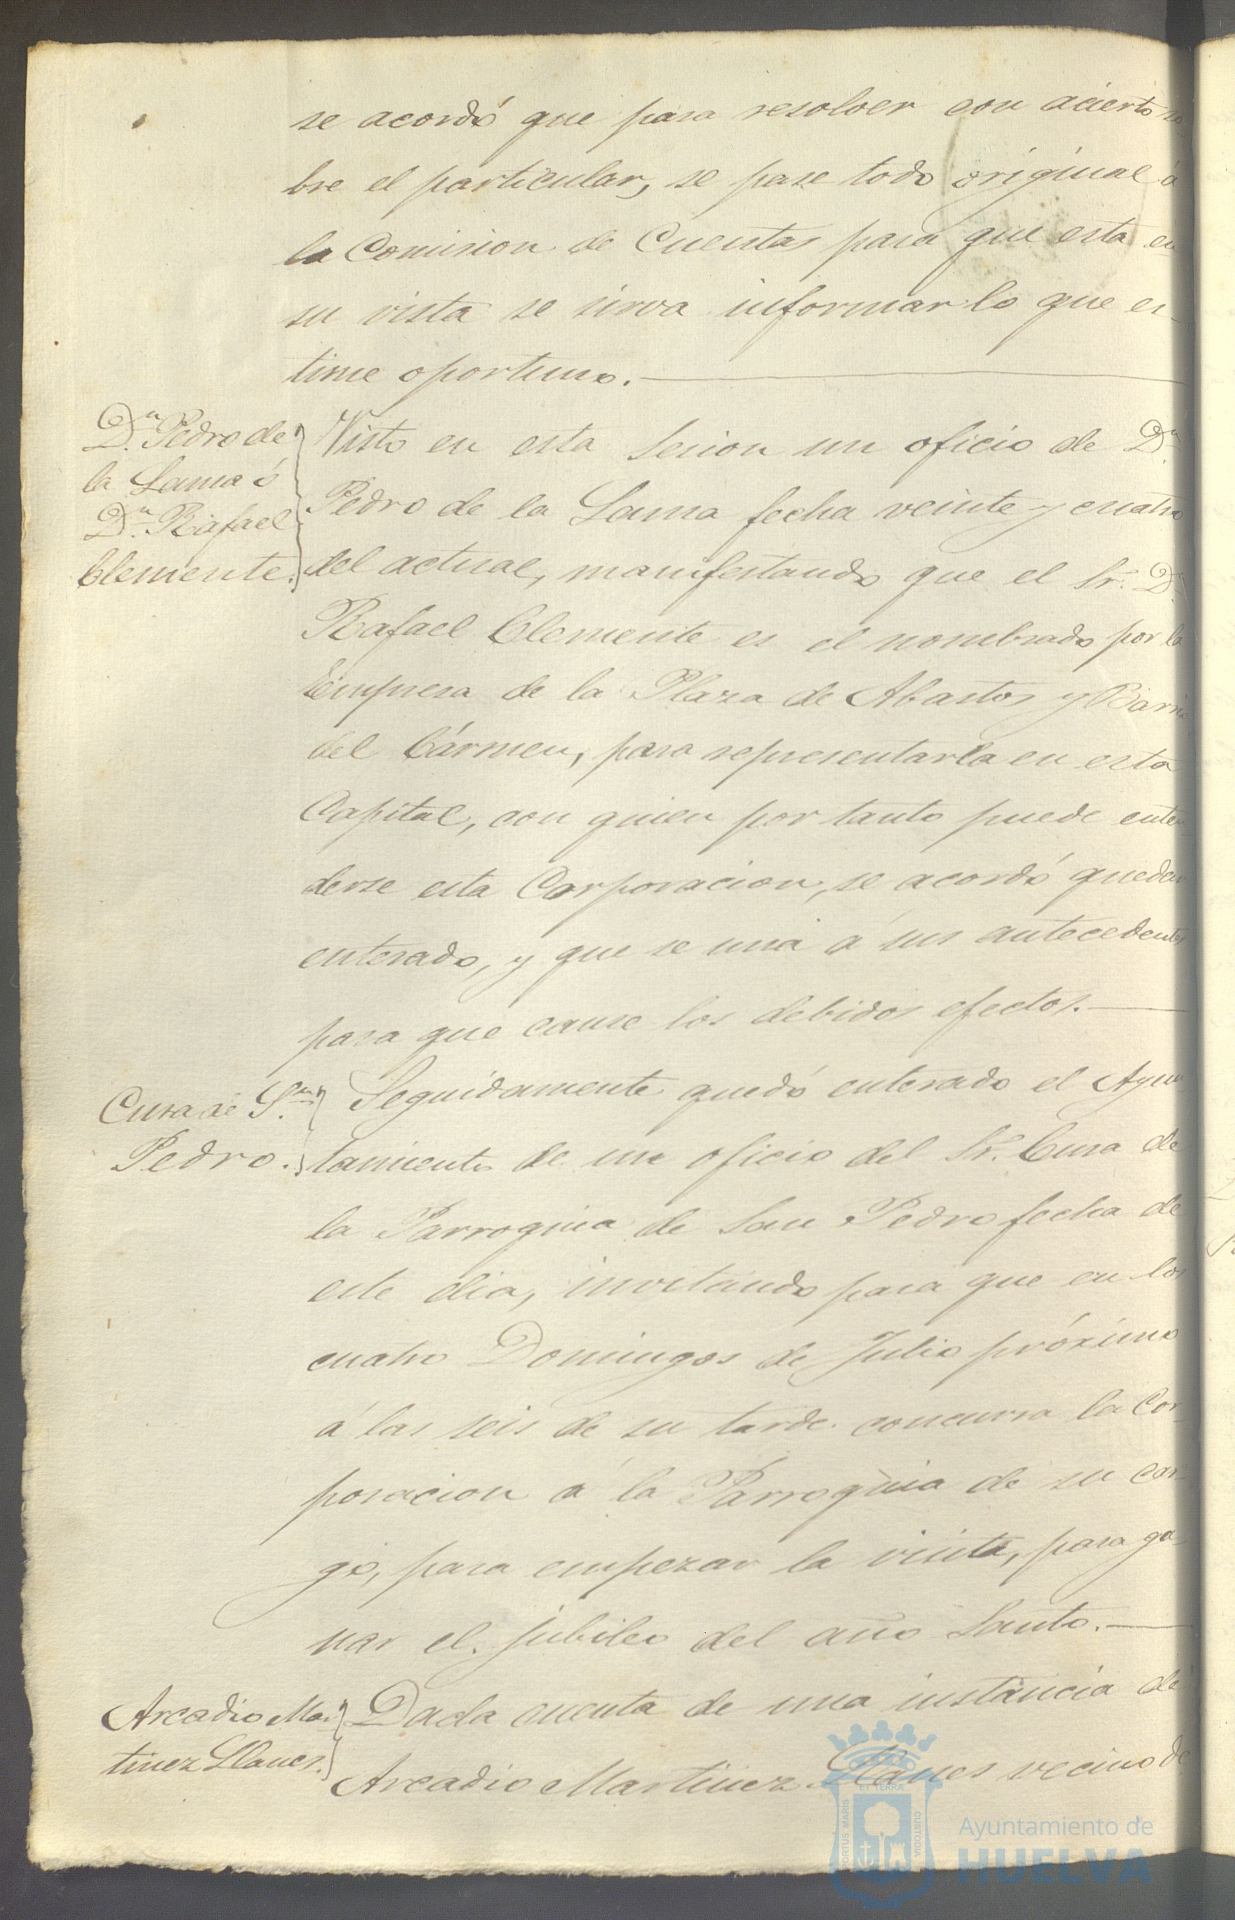 se acordó que para resolver con acierto so
bre el particular, se pase todo original á
la Comision de Cuentas para que esta en
su vista se sirva informar lo que es-
time oportuno.
Dn. Pedro de
la Lama ó
Dn. Rafael
Clemente.
Visto en esta Sesion un oficio de Dn.
Pedro de la Lama fecha veinte y cuatro
del actual, manifestando que el Sr. D.
Rafael Clemente es el nombrado por la
Empresa de la Plaza de Abastos y Barrio
del Cármen, para representarla en esta
Capital, con quien por tanto puede enten
derse esta Corporacion, se acordó quedar
enterado, y que se una á sus antecedentes
para que cause los debidos efectos.
Cura de Sn.
Pedro.
Seguidamente quedó enterado el Ayun
tamiento de un oficio del Sr. Cura de
la Parroquia de San Pedro fecha de
este dia, invitando para que en los
cuatro Domingos de Julio próximo
á las seis de su tarde concurra la Cor
poracion á la Parroquia de su car-
go, para empezar la visita, para ga-
nar el jubileo del año Santo.
Arcadio Mar
tinez Llanes.
Dada cuenta de una instancia de
Arcadio Martinez Llanes vecino de
PORTUS MARIS
ET TERRÆ
CUSTODIA
Ayuntamiento de
HUELVA